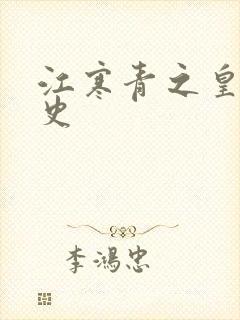 江寒青之皇
史
李鸿忠